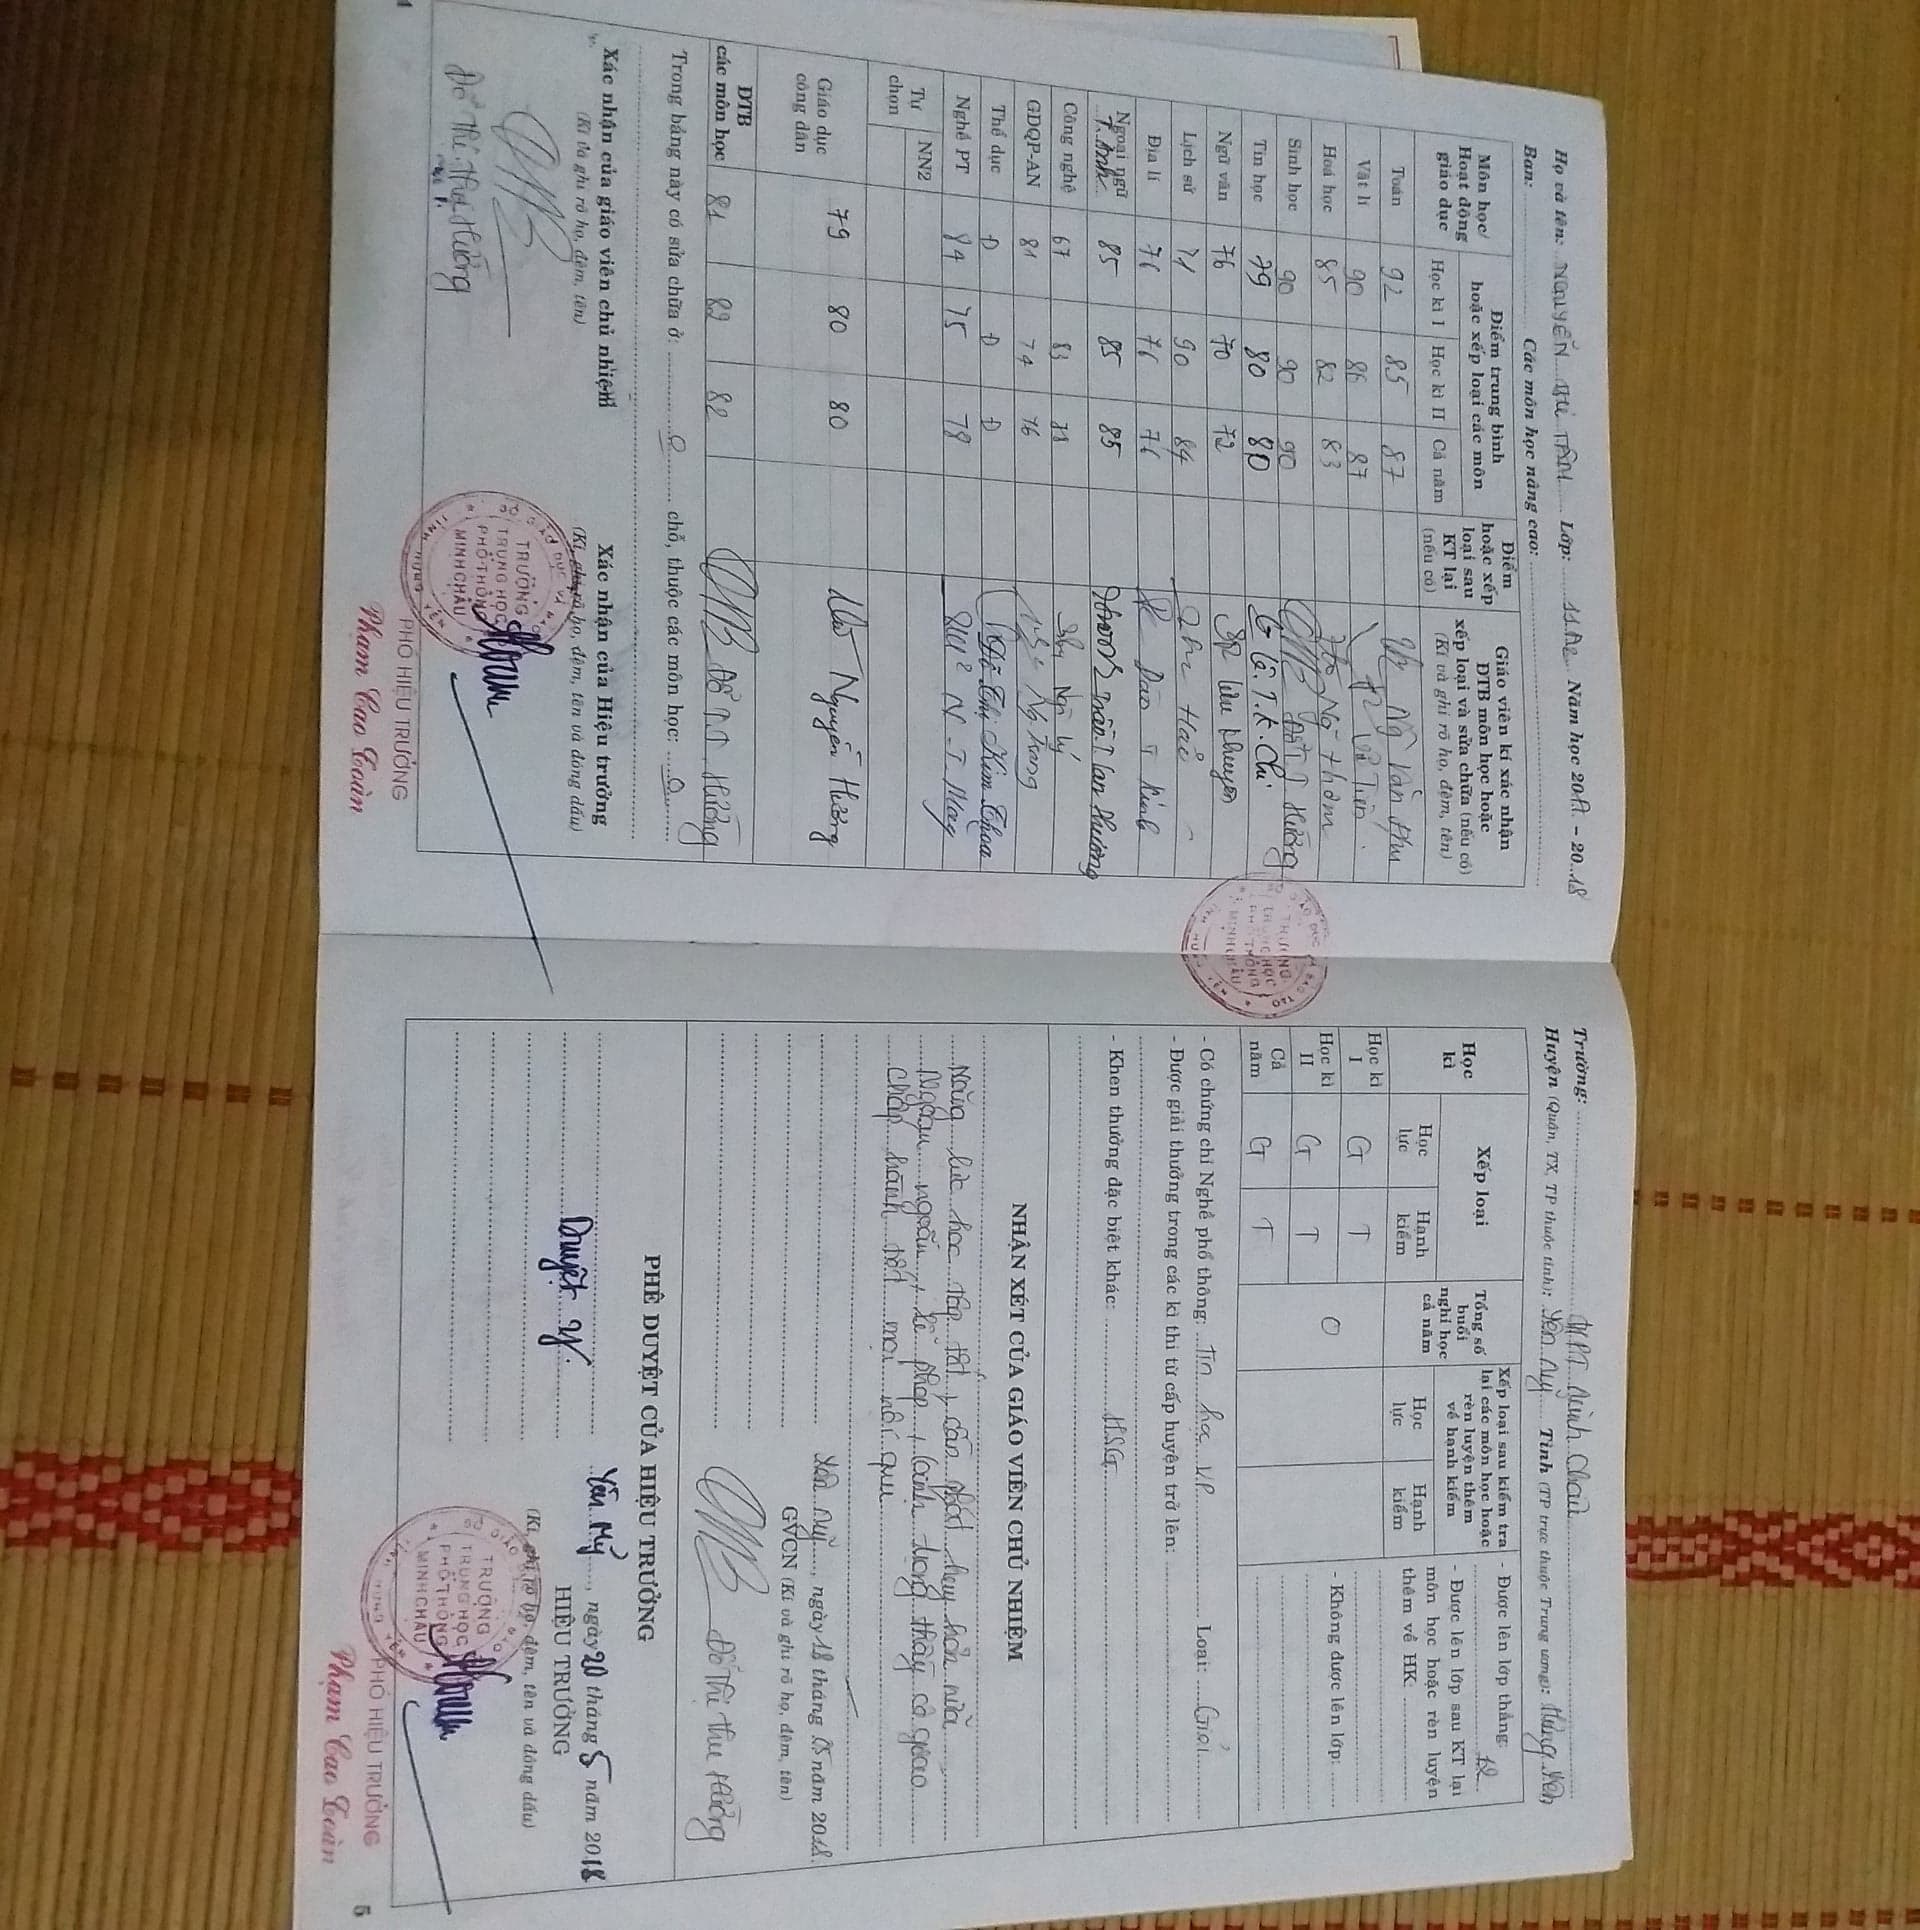 Họ và tên: NGUYỄN THỊ TÂM Lớp: 11A2 Năm học 2017 - 2018
Ban: Các môn học nâng cao:
Môn học/ Hoạt động giáo dục
Điểm trung bình hoặc xếp loại các môn
Học kì I Học kì II Cả năm
Điểm hoặc xếp loại sau KT lại (nếu có)
Giáo viên kí xác nhận ĐTB môn học hoặc xếp loại và sửa chữa (nếu có)
(Kí và ghi rõ họ, đệm, tên)
Toán 92 85 87
Vật lí 90 86 87
Hoá học 85 82 83 Ngô Thơm
Sinh học 90 90 90 Đỗ T T Hường
Tin học 79 80 80 Lê.T.K.Chi
Ngữ văn 76 70 72
Lịch sử 71 90 84
Địa lí 76 76 76
Ngoại ngữ T.Anh 85 85 85 Trần T Lan Phương
Công nghệ 67 83
GDQP-AN 81 74 76
Thể dục Đ Đ Đ Đỗ Thị Kim Thoa
Nghề PT 84 75 78
Tự chọn NN2
Giáo dục công dân 79 80 80 Nguyễn Hường
ĐTB các môn học 81 82 82 Đỗ T.T.Hường
Trong bảng này có sửa chữa ở: 0 chỗ, thuộc các môn học: 0
Xác nhận của giáo viên chủ nhiệm
(Kí và ghi rõ họ, đệm, tên)
Đỗ Thị Thu Hường
Xác nhận của Hiệu trưởng
(Kí, ghi rõ họ, đệm, tên và đóng dấu)
TRƯỜNG
TRUNG HỌC
PHỔ THÔNG
MINH CHÂU
PHÓ HIỆU TRƯỞNG
Phạm Cao Toàn
Trường: THPT Minh Châu
Huyện (Quận, TX, TP thuộc tỉnh): Yên Mỹ Tỉnh (TP trực thuộc Trung ương): Hưng Yên
Học kì
Xếp loại
Học lực Hạnh kiểm
Tổng số buổi nghỉ học cả năm
Xếp loại sau kiểm tra lại các môn học hoặc rèn luyện thêm về hạnh kiểm
Học lực Hạnh kiểm
Học kì I G T
Học kì II G T 0
Cả năm G T
- Được lên lớp thẳng:
- Được lên lớp sau KT lại môn học hoặc rèn luyện thêm về HK:
- Không được lên lớp:
- Có chứng chỉ Nghề phổ thông: Tin học VP Loại: Giỏi
- Được giải thưởng trong các kì thi từ cấp huyện trở lên:
- Khen thưởng đặc biệt khác: HSG
NHẬN XÉT CỦA GIÁO VIÊN CHỦ NHIỆM
Năng lực học tập tốt, cần phát huy hơn nữa.
Ngoan ngoãn, lễ phép, kính trọng thầy cô giáo
chấp hành tốt mọi nội quy
Yên Mỹ, ngày 18 tháng 05 năm 2018
GVCN (Kí và ghi rõ họ, đệm, tên)
Đỗ Thị Thu Hường
PHÊ DUYỆT CỦA HIỆU TRƯỞNG
Duyệt
Yên Mỹ, ngày 20 tháng 5 năm 2018
HIỆU TRƯỞNG
(Kí, ghi rõ họ, đệm, tên và đóng dấu)
TRƯỜNG
TRUNG HỌC
PHỔ THÔNG
MINH CHÂU
PHÓ HIỆU TRƯỞNG
Phạm Cao Toàn
5